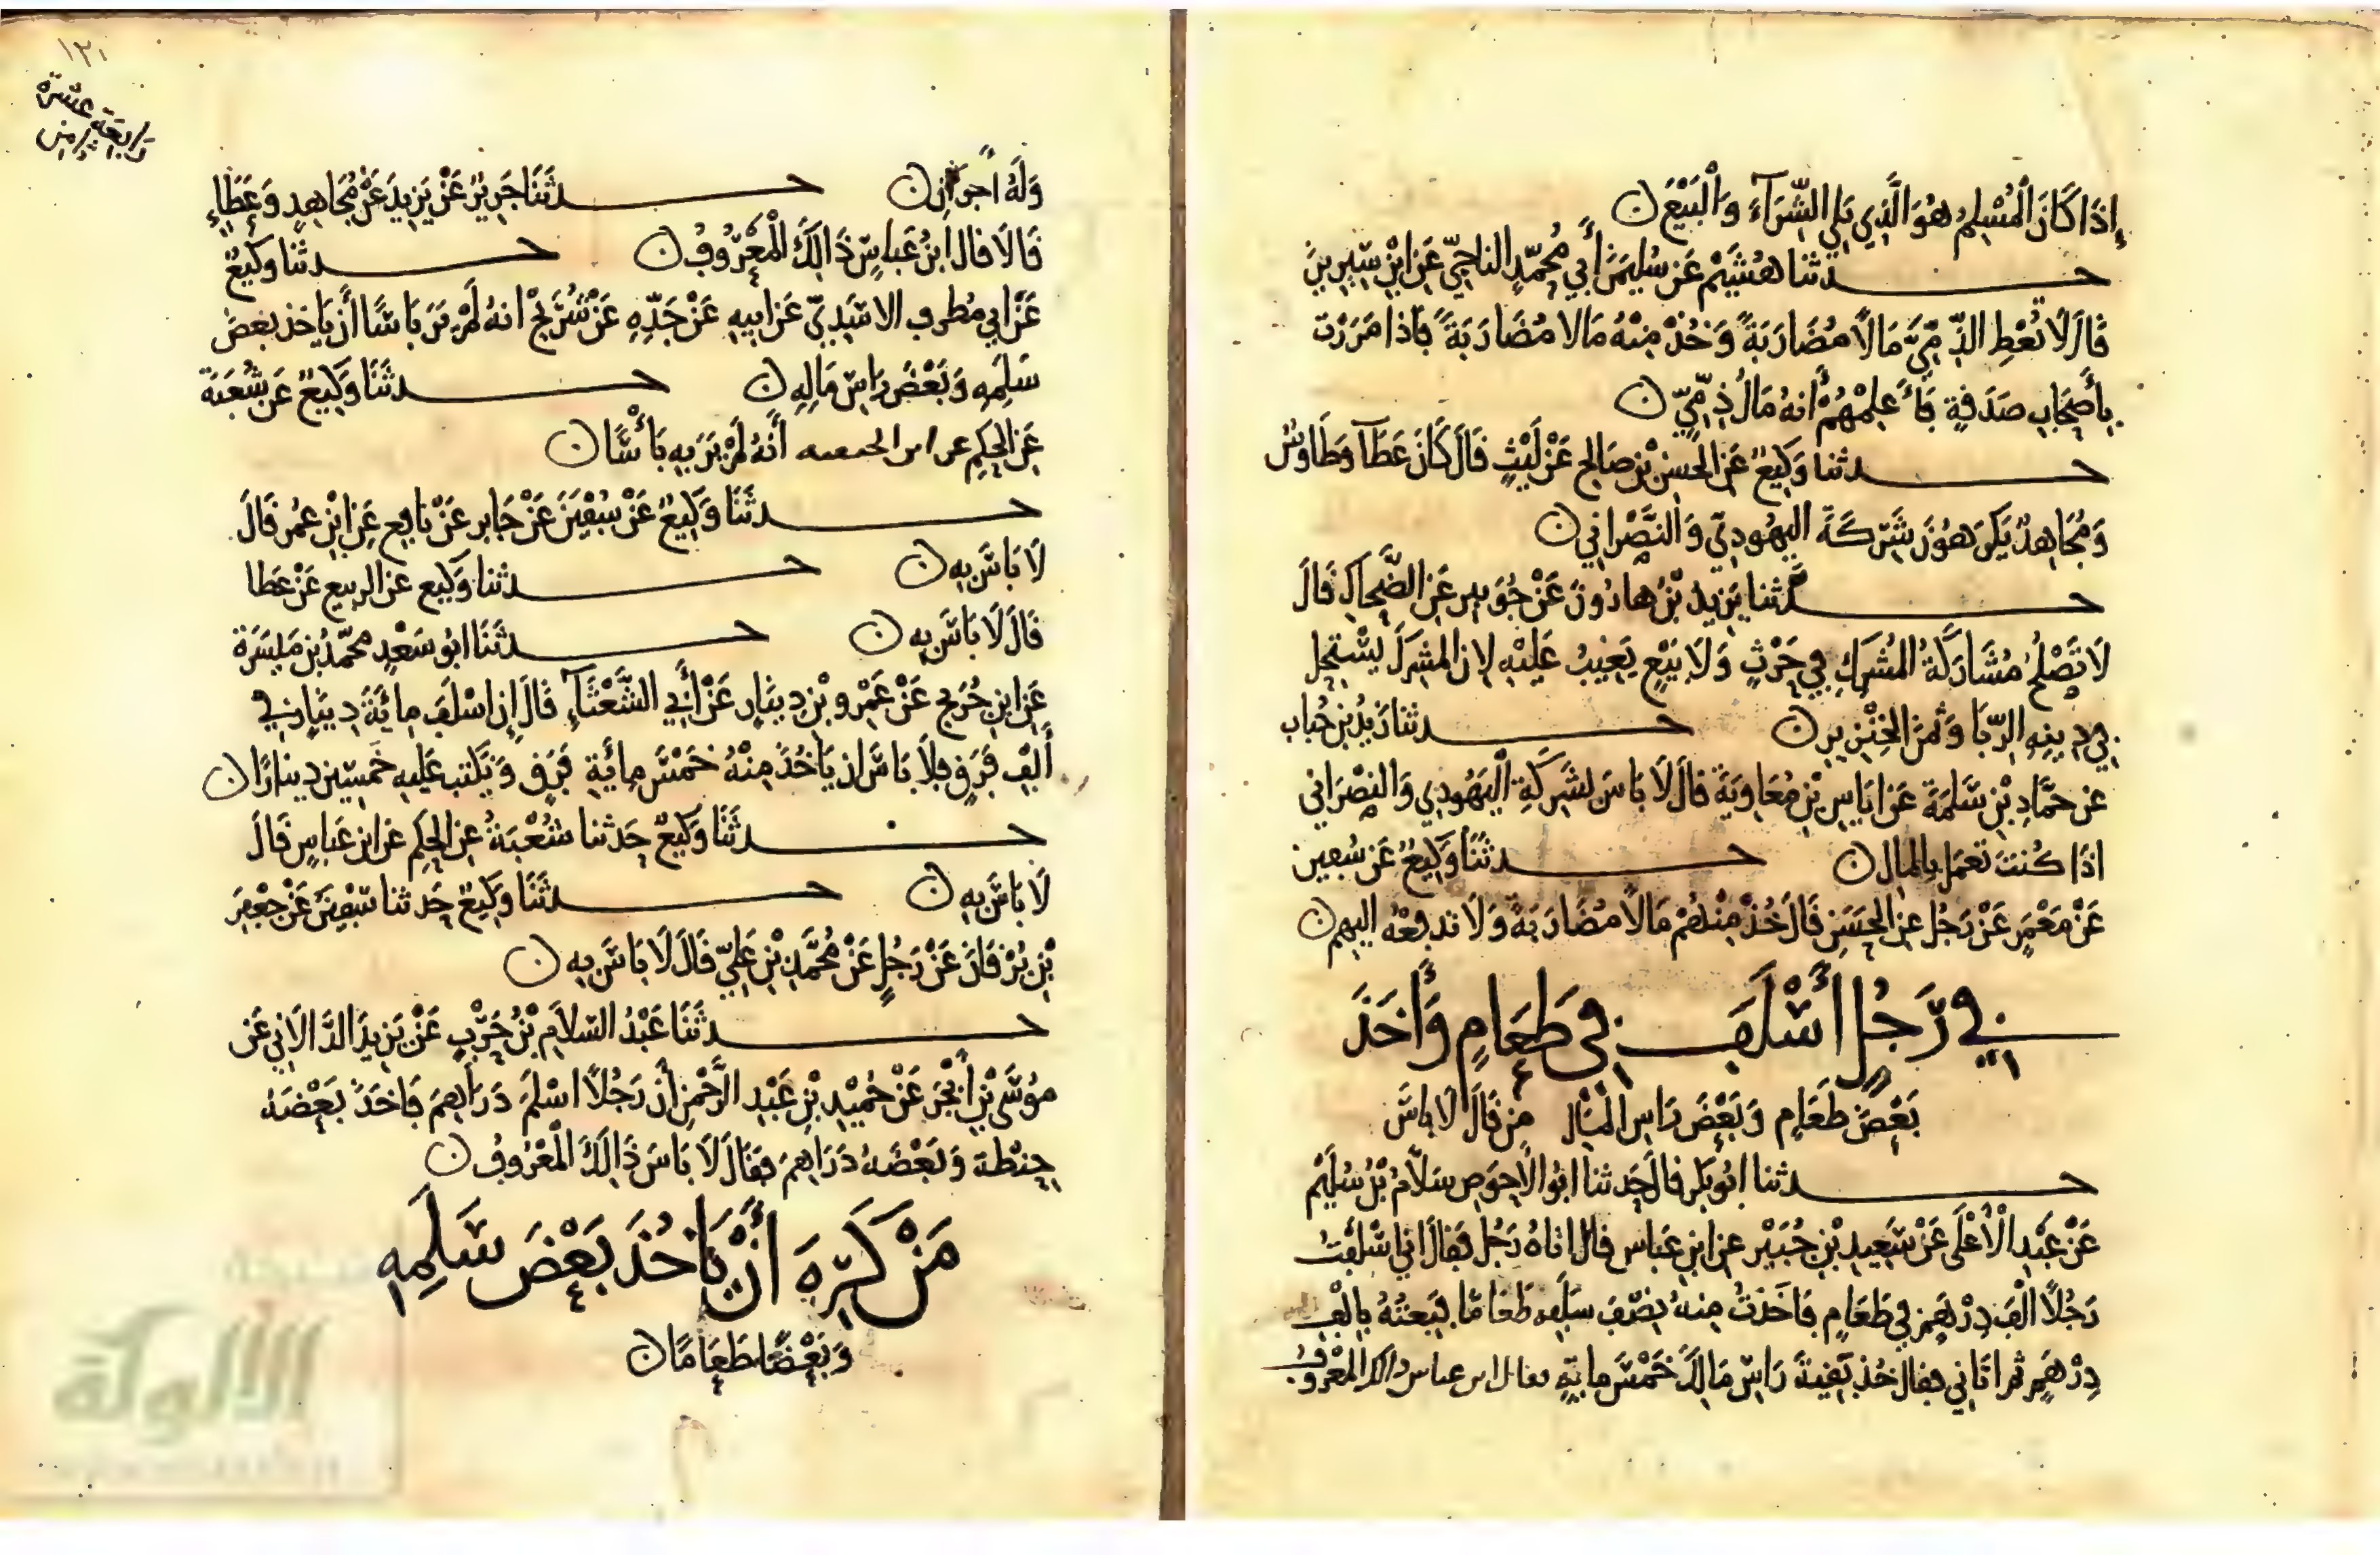 إِذَا كَانَ الْمُسْلِمُ هُوَ الَّذِي يَلِي الشِّرَآءَ وَالْبَيْعَ ن
حـدثنا هُشَيْمٌ عَن سُلَيمَنَ أَبِي مُحَمَّدٍ الناجِيِّ عَن ابْنِ سِيرِينَ
قَالَ لَا تُعْطِ الذِّمِّيَّ مَالًا مُضَارَبَةً وَخُذْ مِنْهُ مَالا مُضَارَبَةً فَاذا مَرَرْتَ
بِأَصْحَابِ صَدَقَةٍ فَأَعْلِمْهُمْ أَنهُ مَالُ ذِمِّيٍّ ن
حـدثنا وَكِيعٌ عَن الحَسَنِ بْنِ صَالِحٍ عَنْ لَيْثٍ قَالَ كَانَ عَطَآ وَطَاوُسٌ
وَمُجَاهِدٌ يَكْرَهُونَ شَرِكَةَ الْيَهُودِيِّ وَالنَّصْرَانِي ن
حـدثنا يَزِيد بْنُ هَارُونَ عَنْ جُوَيبِرٍ عَنِ الضَّحاكِ قَالَ
لَا تَصْلُحُ مُشَارَكَةُ المُشْرِكِ فِي حَرْثٍ وَلَا بَيْعٍ يَغِيبُ عَلَيْهِ لان المشرِكَ يَسْتَحِل
فِي دِينِهِ الرِّبَا وَثَمَنَ الخِنْزِيرِ ن حـدثنا زَيدُ بن حُبَاب
عن حَمَّادِ بْنِ سَلَمَةَ عَن ايَاسِ بْنِ مُعَاوِيَةَ قَالَ لَا بَاسَ بشَرِكَةِ الْيَهُودِي وَالنصْرَانِي
اذَا كُنتَ تَعمَل بِالمال ن حـدثَنَا وَكِيعٌ عَن سُفين
عَنْ مَعْمَرٍ عَنْ رَجُل عنِ الحَسَنِ قَالَ خُذْ مِنْهُمْ مَالًا مُضَارَبَةً وَلَا تَدفَعْهُ اليهم ن
فِي رَجُلٍ أَسْلَفَ فِي طَعَامٍ وَأَخَذَ
بَعْضَ طَعَامٍ وَبَعْضَ رَاسِ المَالِ مَن قَالَ لَا بَاسَ
حـدثنا ابُو بَكرٍ قال حَدثنا ابُو الاحوَصِ سَلَّامُ بْنُ سُلَيْمٍ
عَنْ عَبْدِ الْأَعْلَى عَنْ سَعِيدِ بْنِ جُبَيْرٍ عن ابنِ عَباس قال اتاهُ رَجُل فقالَ اني اسْلَفْتُ
رَجُلًا الْفَ دِرْهَم في طَعَامٍ فَاخَذتُ مِنهُ نِصْفَ سَلَفِي طَعَامًا فَبِعتُهُ بِالْفِ
دِرْهَمٍ ثم اتَانِي فقال خُذ بَقِيةَ رَاسِ مَالِكَ خَمْسَ مايَةٍ فقال ابن عباس ذالك المَعْروفُ
١٢١
رَابعَة عشرة
وَلَهُ اجرَانِ ن حـدثَنَا جَرِيرٌ عَنْ يَزِيدَ عَنْ مُجَاهِدٍ وَعَطَاءٍ
قَالَا قال ابنُ عَباسٍ ذَالِكَ الْمَعْرُوفُ ن حـدثنا وَكِيعٌ
عَنْ ابي مُطرفٍ الاسَدِيِّ عَن ابيهِ عَنْ جَدِّهِ عَنْ شُرَيحٍ انهُ لَمْ يَرَ بَاسًا أَن يَاخذ بعضَ
سَلَمِهِ وَبَعْضَ رَاسِ مَالِهِ ن حـدثَنَا وَكِيعٌ عَن شُعْبَةَ
عَنِ الحَكَمِ عن ابن الحنفيه أَنَّهُ لَمْ يَرَ بِهِ بَأْسًا ن
حـدثَنَا وَكِيعٌ عَنْ سُفْيَنَ عَنْ جَابِرٍ عَنْ نَافِعٍ عَنِ ابْنِ عُمَر قَالَ
لَا بَاسَ بِهِ ن حـدثنا وَكِيع عن الربيع عَنْ عَطا
قَالَ لَا بَاسَ بِهِ ن حـدثَنَا ابُو سَعْدٍ محَمَّدُ بْنُ مَيْسَرَةَ
عَن ابنِ جُرَيجٍ عَنْ عَمْرو بْنِ دِينَارٍ عَنْ أَبي الشَّعْثَآءِ قَالَ إِن اسْلَفَ مِائَةَ دِينَارٍ فِي
أَلْفِ فَرَقٍ فلَا بَاسَ ان يَاخُذَ مِنْهُ خَمْسَ مِائَةِ فَرَقٍ وَيَكْتب عَلَيهِ خَمسِين دينارًا ن
حـدثَنَا وَكِيعٌ حَدثنا شُعْبَةُ عنِ الحَكم عن ابن عَباسٍ قَالَ
لَا بَاسَ بِهِ ن حـدثَنَا وَكِيعٌ حَدثنا سُفْيَنُ عَنْ جَعْفَرِ
بْنِ بُرْقَانَ عَنْ رَجُلٍ عَنْ مُحَمَّدِ بْنِ عَلِيٍّ قَالَ لَا بَاسَ بِهِ ن
حـدثَنَا عَبْدُ السَّلَامِ بْنُ حَرْبٍ عَنْ يَزِيدَ الدَّالَانِي عَن
مُوسَى بْنِ أَبْجَرَ عَنْ حُمَيْدِ بْنِ عَبْدِ الرَّحْمنِ أَنَّ رَجُلًا اسْلَمَ دَرَاهِمَ فَاخَذَ بَعْضَهُ
حِنْطَة وَبَعْضَهُ دَرَاهِمَ فقَالَ لَا بَاسَ ذَالِكَ الْمَعْرُوفُ ن
مَنْ كَرِهَ أَنْ يَاخُذَ بَعْضَ سَلَمِهِ
وَبَعْضًا طَعَامًا ن
الألوكة